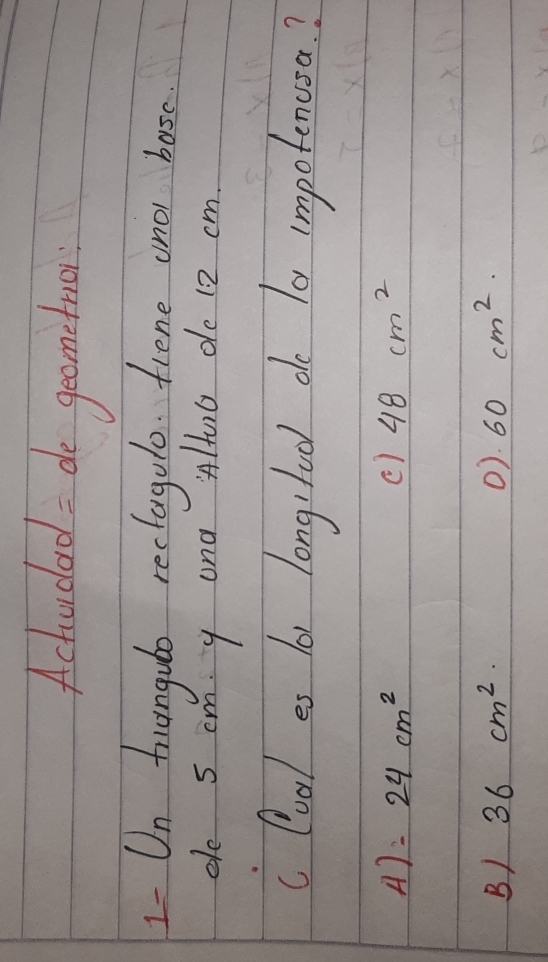 Actividad = de geometria:
1= Un triangulo rectagulo. tiene una base.
de 5 cm. y una Altub de 12 cm.
¿ Cual es la longitud de la impotenusa.?
A)- 24 cm² C) 48 cm²
B) 36 cm². D). 60 cm².